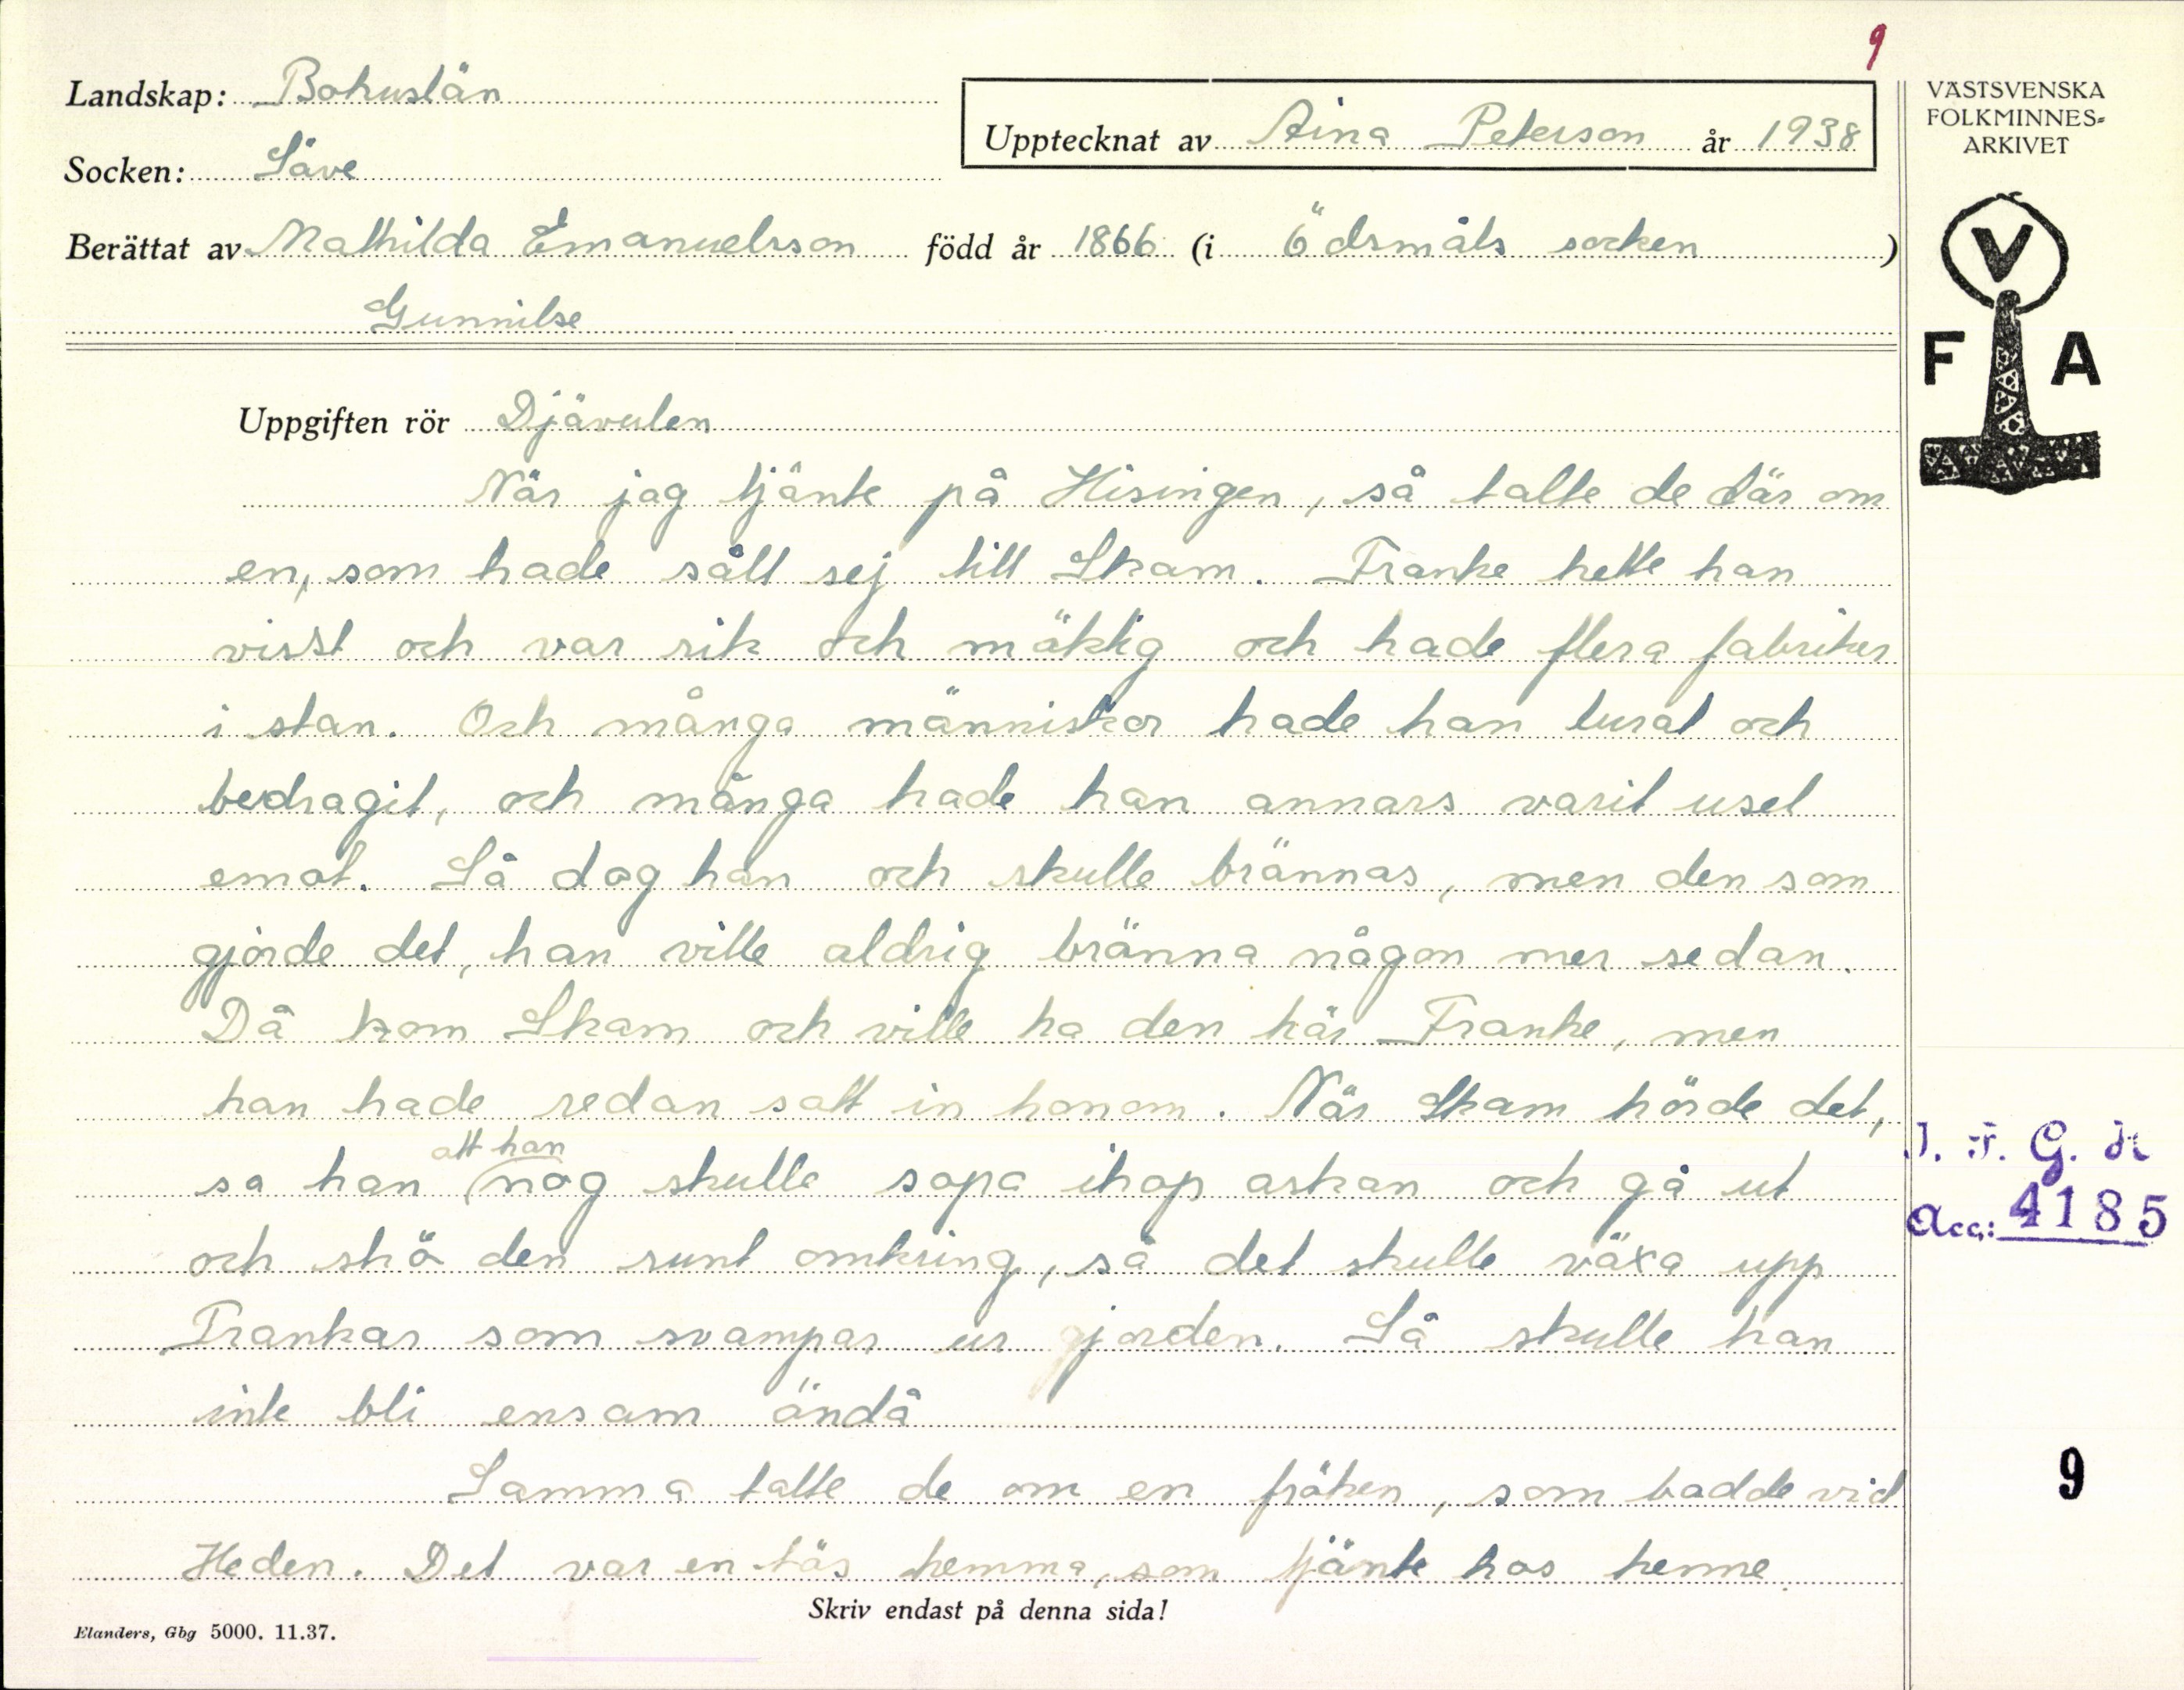 9
Landskap: Bohuslän
Upptecknat av Aina Peterson år 1938
VÄSTSVENSKA
FOLKMINNES-
ARKIVET
Socken: Säve
Berättat av Mathilda Emanuelsson född år 1866 (i Ödsmåls socken)
Gunnilse
V
F A
Uppgiften rör Djävulen
När jag tjänte på Hisingen, så talte de där om
en, som hade sålt sej till Skam. Franke hette han
visst och var rik och mäktig och hade flera fabriker
i stan. Och många människor hade han lurat och
bedragit, och många hade han annars varit usel
emot. Så dog han och skulle brännas, men den som
gjorde det, han ville aldrig bränna någon mer sedan.
Då kom Skam och ville ha den här Franke, men
han hade redan satt in honom. När Skam hörde det,
sa han att han nog skulle sopa ihop askan och gå ut
och strö den runt omkring, så det skulle växa upp
Frankar som svampar ur jorden. Så skulle han
inte bli ensam ändå
Samma talte de om en fröken, som badde vid
Heden. Det var en täs hemma, som tjänte hos henne.
I. F. G. 
Acc.: 4185
9
Skriv endast på denna sida!
Elanders, Gbg 5000. 11.37.